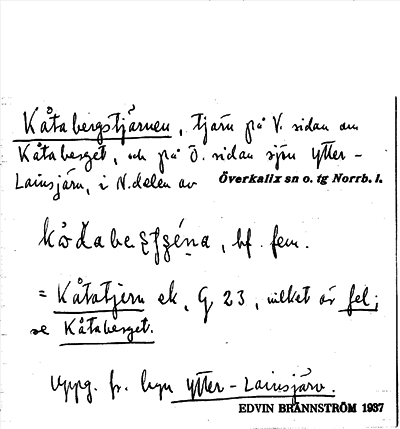 Kåtabergstjärnen, tjärn på V. sidan om
Kåtaberget, och på Ö. sidan sjön Ytter-
Lainsjärv, i N.delen av Överkalix sn o. tg Norrb. l.
bf. fem.
= Kåtatjern ek. G 23, vilket är fel;
se Kåtaberget.
Uppg. fr. byn Ytter-Lainsjärv.
EDVIN BRÄNNSTRÖM 1937